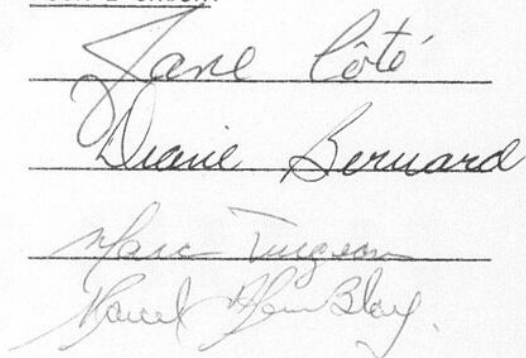 Jane Côté
Diane Bernard
Marc Turgeon
Marcel